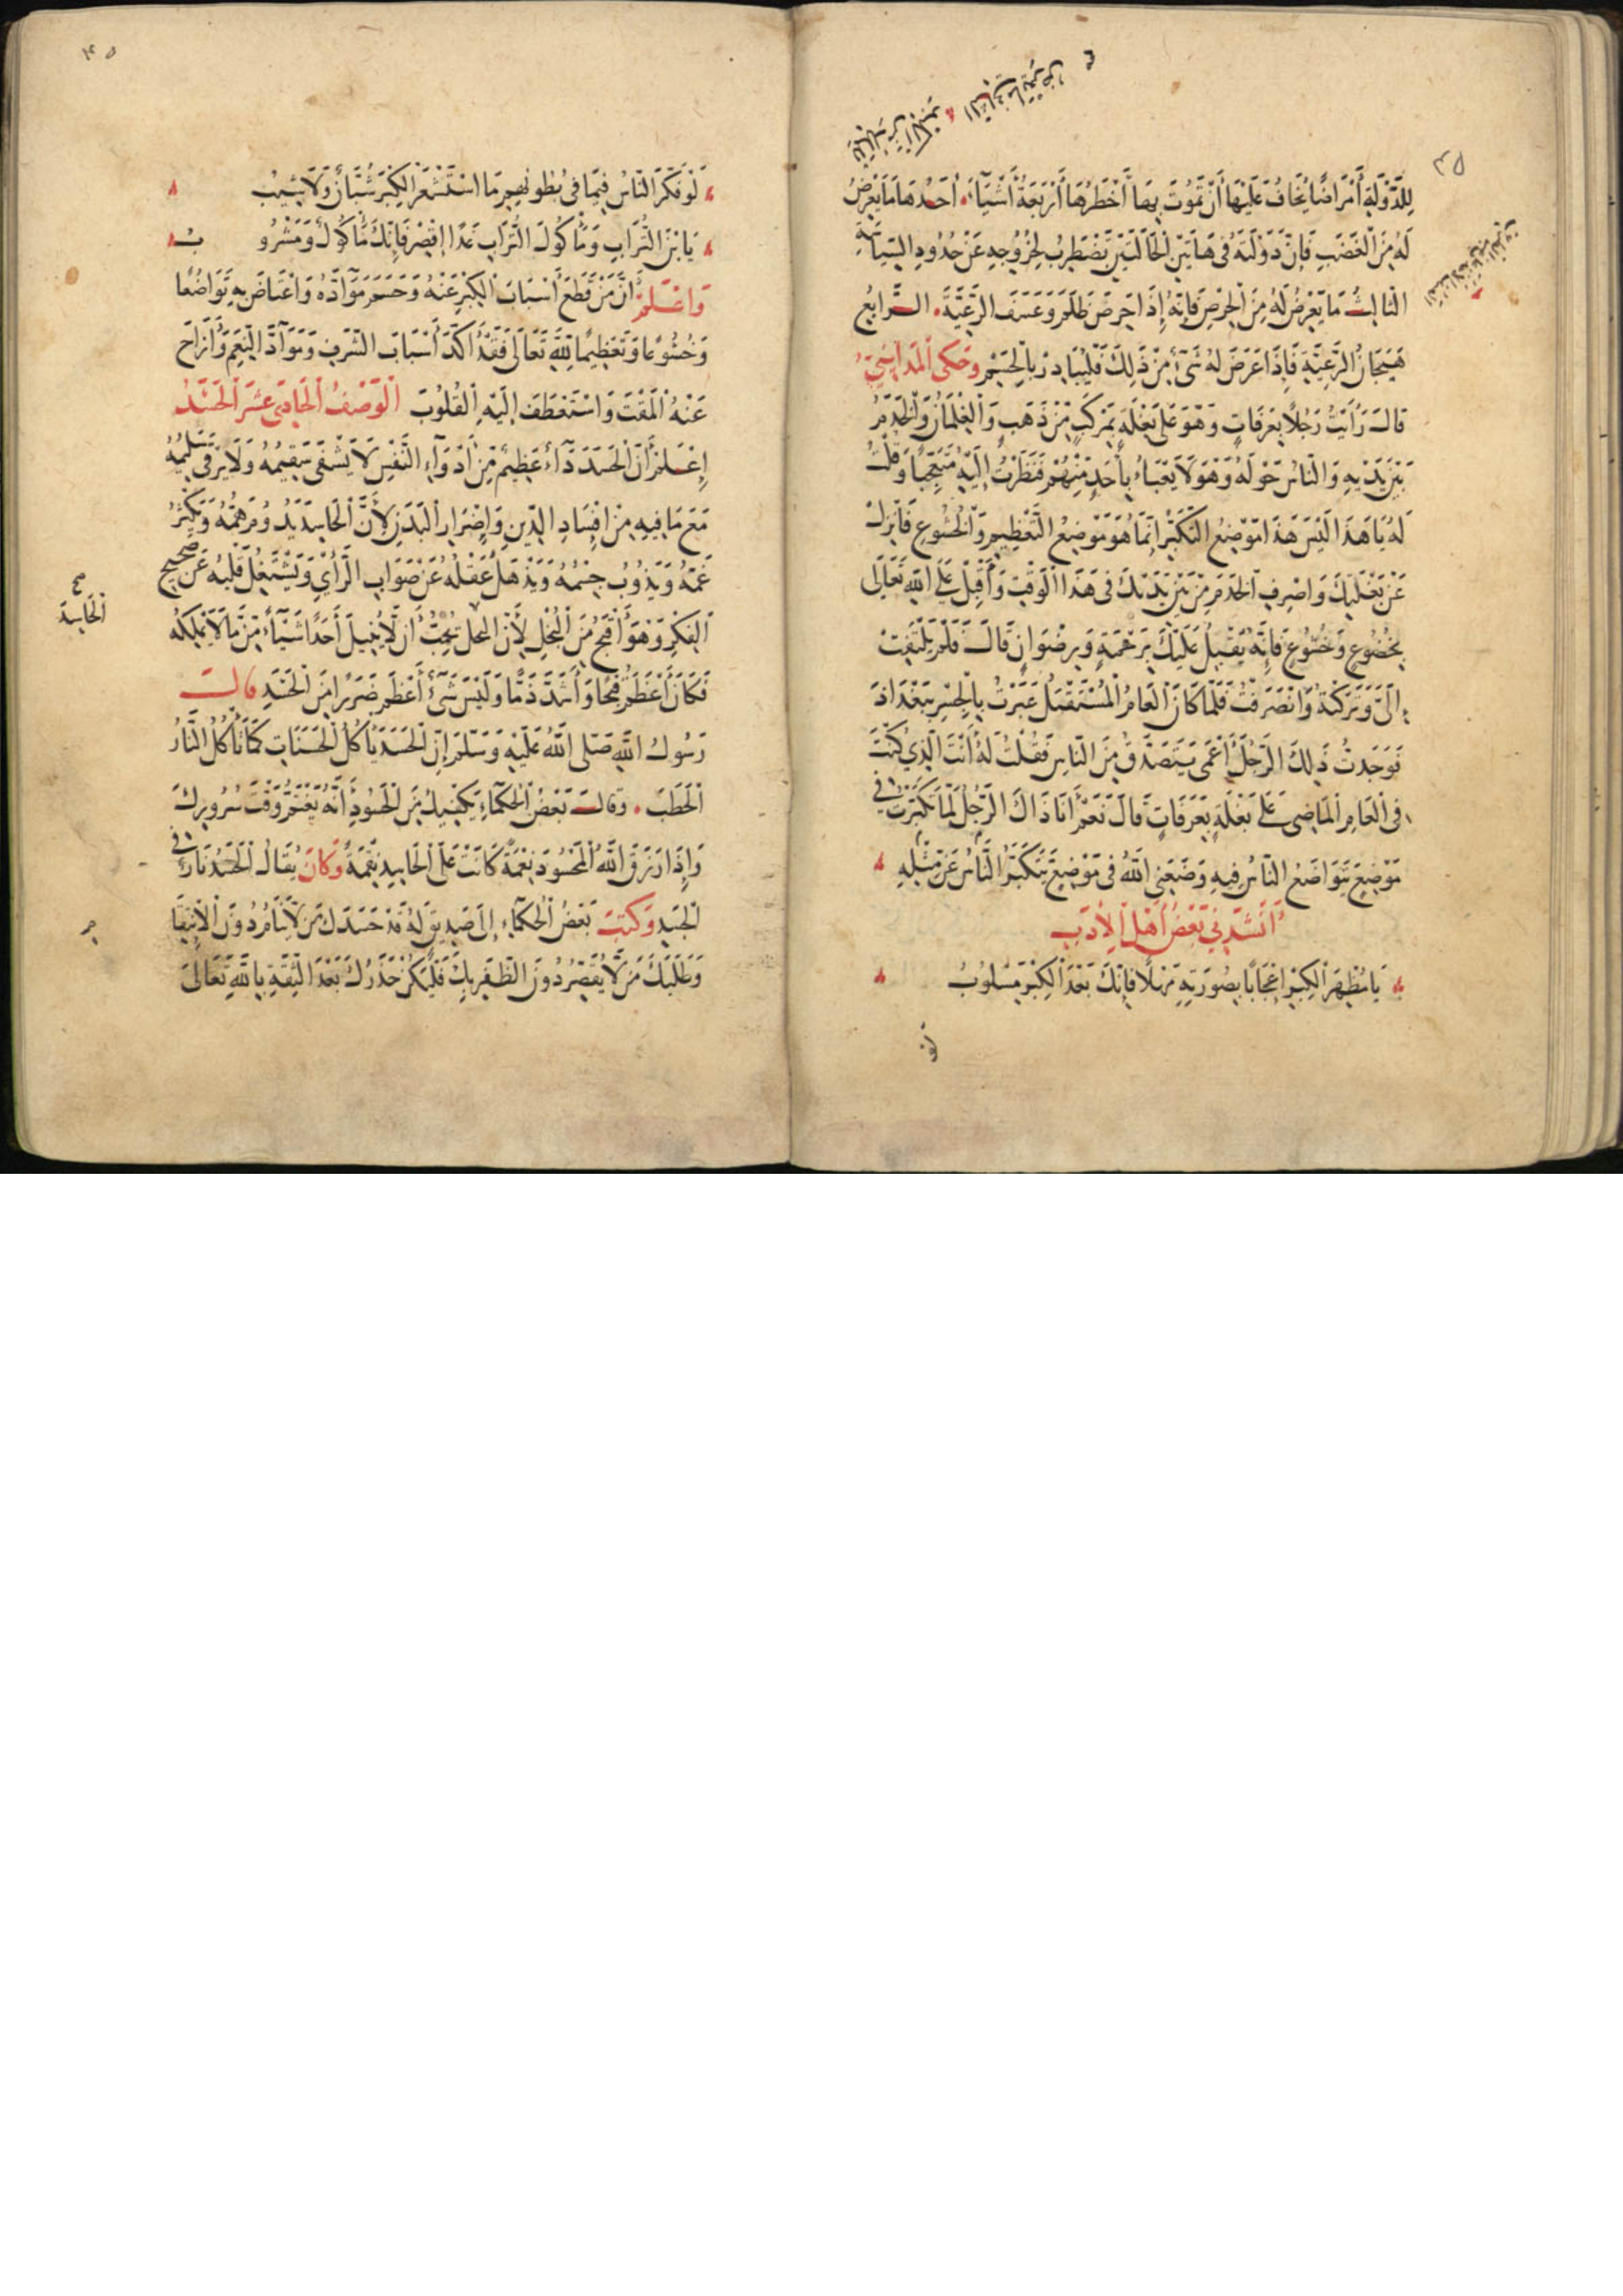 لِلدَّوْلَةِ أَمْرَاضًا يُخَافُ عَلَيْهَا أَنْ تَمُوتَ بِهَا أَخْطَرُهَا أَرْبَعَةُ أَشْيَاءَ. أَحَدُهَا مَا يَعْرِضُ
لَهُ مِنَ الْغَضَبِ فَإِنَّ دَوْلَتَهُ فِي هَاتَيْنِ الْحَالَتَيْنِ تَضْطَرِبُ لِخُرُوجِهِ عَنْ حُدُودِ السِّيَاسَةِ
الثالثُ مَا يَعْرِضُ لَهُ مِنَ الْحِرْصِ فَإِنَّهُ إِذَا حَرَصَ ظَلَمَ وَعَسَفَ الرَّعِيَّةَ. الرَّابِعُ
هَيَجَانُ الرَّعِيَّةِ فَإِذَا عَرَضَ لَهُ شَيْءٌ مِنْ ذَلِكَ فَلْيُبَادِرْ بِالْحَسْمِ وَحَكَى الْمَدَايِنِيُّ
قَالَ رَأَيْتُ رَجُلًا بِعَرَفَاتٍ وَهُوَ عَلَى بَغْلَةٍ بِمَرْكَبٍ مِنْ ذَهَبٍ وَالْغِلْمَانُ وَالْخَدَمُ
بَيْنَ يَدَيْهِ وَالنَّاسُ حَوْلَهُ وَهُوَ لَا يَعْبَاءُ بِأَحَدٍ مِنْهُمْ فَنَظَرْتُ إِلَيْهِ مُتَعَجِّبًا وَقُلْتُ
لَهُ يَا هَذَا لَيْسَ هَذَا مَوْضِعُ التَّكَبُّرِ إِنَّمَا هُوَ مَوْضِعُ التَّعْظِيمِ وَالْخُشُوعِ فَانْزِلْ
عَنْ بَغْلَتِكَ وَاصْرِفِ الْخَدَمَ مِنْ بَيْنِ يَدَيْكَ فِي هَذَا الْوَقْتِ وَأَقْبِلْ عَلَى اللهِ تَعَالَى
بِخُضُوعٍ وَخُشُوعٍ فَإِنَّهُ يُقْبِلُ عَلَيْكَ بِرَحْمَةٍ وَبِرِضْوَانٍ قَالَ فَلَمْ يَلْتَفِتْ
إِلَيَّ وَتَرَكْتُهُ وَانْصَرَفْتُ فَلَمَّا كَانَ الْعَامُ الْمُسْتَقْبَلُ عَبَرْتُ بِالْجِسْرِ بِبَغْدَاذَ
فَوَجَدْتُ ذَلِكَ الرَّجُلَ أَعْمَى يَتَصَدَّقُ مِنَ النَّاسِ فَقُلْتُ لَهُ أَنْتَ الَّذِي كُنْتَ
فِي الْعَامِ الْمَاضِي عَلَى بَغْلَةٍ بِعَرَفَاتٍ قَالَ نَعَمْ أَنَا ذَاكَ الرَّجُلُ لَمَّا تَكَبَّرْتُ فِي
مَوْضِعٍ يَتَوَاضَعُ النَّاسُ فِيهِ وَضَعَنِي اللهُ فِي مَوْضِعٍ يَتَكَبَّرُ النَّاسُ عَنْ مِثْلِهِ
أَنْشَدَنِي بَعْضُ أَهْلِ الْأَدَبِ
يَا مُظْهِرَ الْكِبْرِ إِعْجَابًا بِصُورَتِهِ مَهْلًا فَإِنَّكَ بَعْدَ الْكِبْرِ مَسْلُوبُ
لَوْ فَكَّرَ النَّاسُ فِيمَا فِي بُطُونِهِمِ مَا اسْتَشْعَرَ الْكِبْرَ شُبَّانٌ وَلَا شِيبُ
يَا بْنَ التُّرَابِ وَمَأْكُولَ التُّرَابِ غَدًا إِقْصِرْ فَإِنَّكَ مَأْكُولٌ وَمَشْرُوبُ
وَاعْلَمْ أَنَّ مَنْ قَطَعَ أَسْبَابَ الْكِبْرِ عَنْهُ وَحَسَمَ مَوَادَّهُ وَاعْتَاضَ بِهِ تَوَاضُعًا
وَخُشُوعًا وَتَعْظِيمًا لِلَّهِ تَعَالَى فَقَدْ أَكَّدَ أَسْبَابَ الشَّرَفِ وَمَوَادَّ النِّعَمِ وَأَزَاحَ
عَنْهُ الْمَقْتَ وَاسْتَعْطَفَ إِلَيْهِ الْقُلُوبَ الْوَصْفُ الْحَادِي عَشَرَ الْحَسَدُ
إِعْلَمْ أَنَّ الْحَسَدَ دَاءٌ عَظِيمٌ مِنْ أَدْوَاءِ النَّفْسِ لَا يَشْفَى سَقِيمُهُ وَلَا يَرْقَى سَلِيمُهُ
مَعَ مَا فِيهِ مِنْ إِفْسَادِ الدِّينِ وَإِضْرَارِ الْبَدَنِ لِأَنَّ الْحَاسِدَ يَدُومُ هَمُّهُ وَيَكْثُرُ
غَمُّهُ وَيَذُوبُ جِسْمُهُ وَيَذْهَلُ عَقْلُهُ عَنْ صَوَابِ الرَّأْيِ وَيَشْتَغِلُ قَلْبُهُ عَنْ صَحِيحِ
الْفِكْرِ وَهُوَ أَقْبَحُ مِنَ الْبُخْلِ لِأَنَّ الْبخل يُحِبُّ أَنْ لَا يُنِيلَ أَحَدًا شَيْئًا مِنْ مَا لَا يَمْلِكُهُ
فَكَانَ أَعْظَمَ قُبْحًا وَأَشَدَّ ذَمًّا وَلَيْسَ شَيْءٌ أَعْظَمَ ضَرَرًا مِنَ الْحَسَدِ قَالَ
رَسُولُ اللهِ صَلَّى اللهُ عَلَيْهِ وَسَلَّمَ إِنَّ الْحَسَدَ يَأْكُلُ الْحَسَنَاتِ كَمَا تَأْكُلُ النَّارُ
الْحَطَبَ. وَقَالَ بَعْضُ الْحُكَمَاءِ يَكْفِيكَ مِنَ الْحَسُودِ أَنَّهُ يَغْتَمُّ وَقْتَ سُرُورِكَ
وَإِذَا رَزَقَ اللهُ الْمَحْسُودَ نِعْمَةً كَانَتْ عَلَى الْحَاسِدِ نِقْمَةً وَكَانَ يُقَالُ الْحَسَدُ نَارٌ فِي
الْجَسَدِ وَكَتَبَ بَعْضُ الْحُكَمَاءِ إِلَى صَدِيقٍ لَهُ قَدْ حَسَدَكَ مَنْ لَا يَنَامُ دُونَ الْإِنْتِقَا
وَطَلَبَكَ مَنْ لَا يُقَصِّرُ دُونَ الظَّفَرِ بِكَ فَلْيَكُنْ حَذَرُكَ بَعْدَ الثِّقَةِ بِاللهِ تَعَالَى
صح
الْحَاسِد